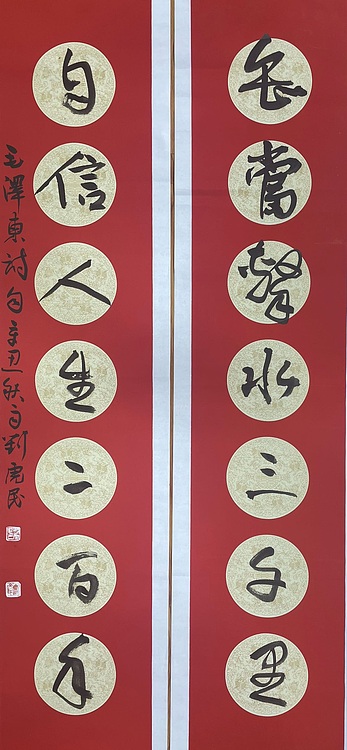 会當擊水三千里
自信人生二百年
毛澤東詩句辛丑秋月劉虎民